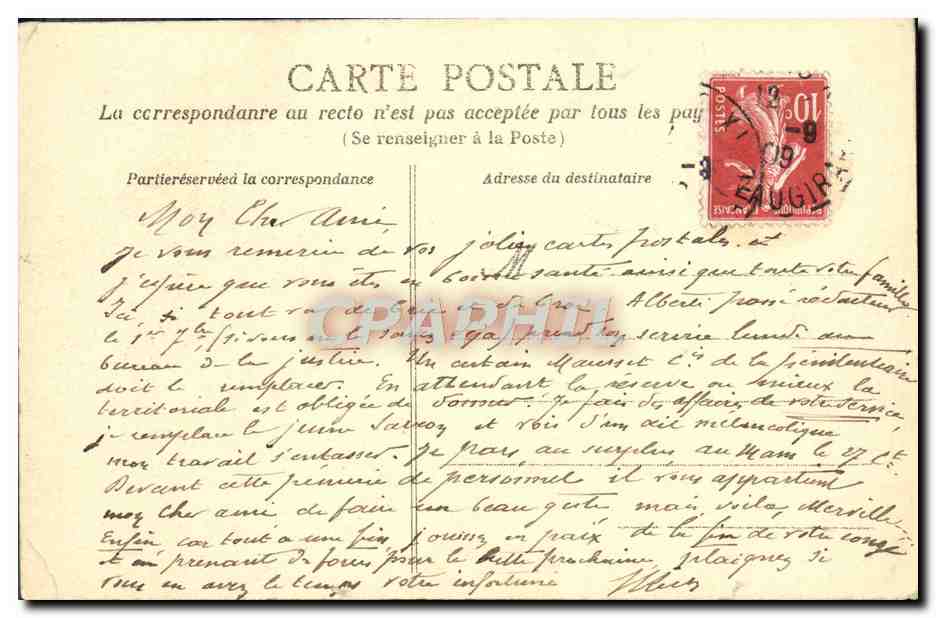 CARTE POSTALE
La correspondanre au recto n'est pas acceptée par tous les pay
(Se renseigner à la Poste)
Partie réservée à la correspondance
Adresse du destinataire
10 c
POSTES
REPUBLIQUE FRANÇAISE
12
-9
09
VAUGIRA
Mon Cher Ami
Je vous remercie de vos jolies cartes postales et
j'espère que vous êtes en bonne santé ainsi que toute votre famille
Ici tout va de Alberti passé rédacteur
le 1er 7bre (si vous ne le savez pas) prend son service lundi au
bureau de la justice. Un certain Mausset Cis de la pénitentiaire
doit le remplacer. En attendant la réserve ou mieux la
territoriale est obligée de donner. Je fais des affaires de votre service,
je remplace le jeune et vois d'un œil mélancolique
mon travail s'entasser. Je pars au surplus au Mans le 27 Ct
Devant cette pénurie de personnel il vous appartient
mon cher ami de faire un beau geste mais voilà, Merville
Enfin car tout a une fin jouissez en paix de la fin de votre congé
et en prenant des forces pour la lutte prochaine plaignez si
vous en avez le temps votre infortuné
CPAPHIL